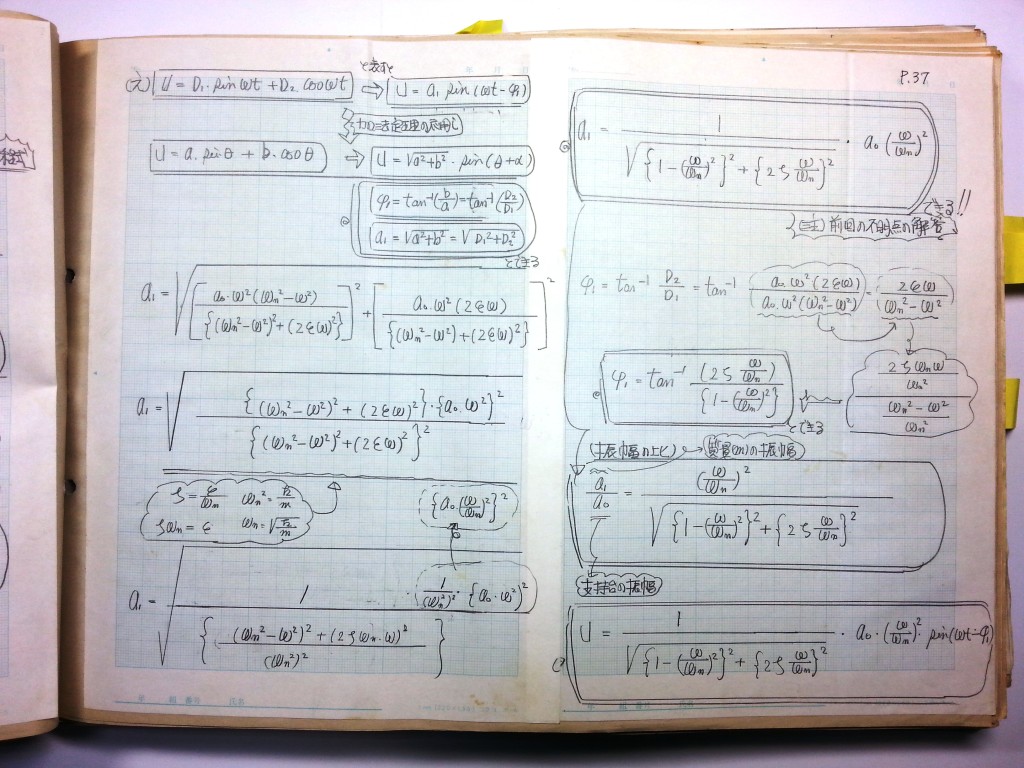 P.37
と表すと
U = D₁·sinωt + D₂·cosωt ⇒ U = a₁ sin(ωt−φ₁)
U = a·sinθ + b·cosθ ⇒ U = √(a²+b²)·sin(θ+α)
φ₁ = tan⁻¹(b/a) = tan⁻¹(D₂/D₁)
a₁ = √(a²+b²) = √(D₁²+D₂²)
とできる
a₁ = √([a₀·ω²(ωn²−ω²)/{(ωn²−ω²)²+(2εω)²}]² + [a₀·ω²(2εω)/{(ωn²−ω²)+(2εω)²}]²)
a₁ = √({(ωn²−ω²)²+(2εω)²}·{a₀·ω²}²/{(ωn²−ω²)²+(2εω)²}²)
ζ = ε/ωn ωn² = k/m
ζωn = ε ωn = √(k/m)
{a₀·(ω/ωn)²}²
a₁ = √(1/{((ωn²−ω²)²+(2ζωn·ω)²)/(ωn²)²}·1/(ωn²)²·{a₀·ω²)²)
a₁ = 1/√({1−(ω/ωn)²}²+{2ζω/ωn}²)·a₀(ω/ωn)²
できる!!
(注) 前回の不明点の解答
φ₁ = tan⁻¹ D₂/D₁ = tan⁻¹ a₀ω²(2εω)/a₀ω²(ωn²−ω²) = 2εω/(ωn²−ω²)
φ₁ = tan⁻¹ (2ζω/ωn)/{1−(ω/ωn)²}
(2ζωnω/ωn²)/((ωn²−ω²)/ωn²)
とできる
(振幅の比) 質量(m)の振幅
a₁/a₀ = (ω/ωn)²/√({1−(ω/ωn)²}²+{2ζω/ωn}²)
支持台の振幅
U = 1/√({1−(ω/ωn)²}²+{2ζω/ωn}²)·a₀·(ω/ωn)²·sin(ωt−φ₁)